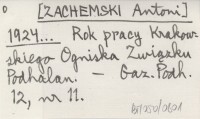 0 [ZACHEMSKI Antoni]
1924... Rok pracy Krakow-
skiego Ogniska Związku
Podhalan. – Gaz. Podh.
12, nr 11.